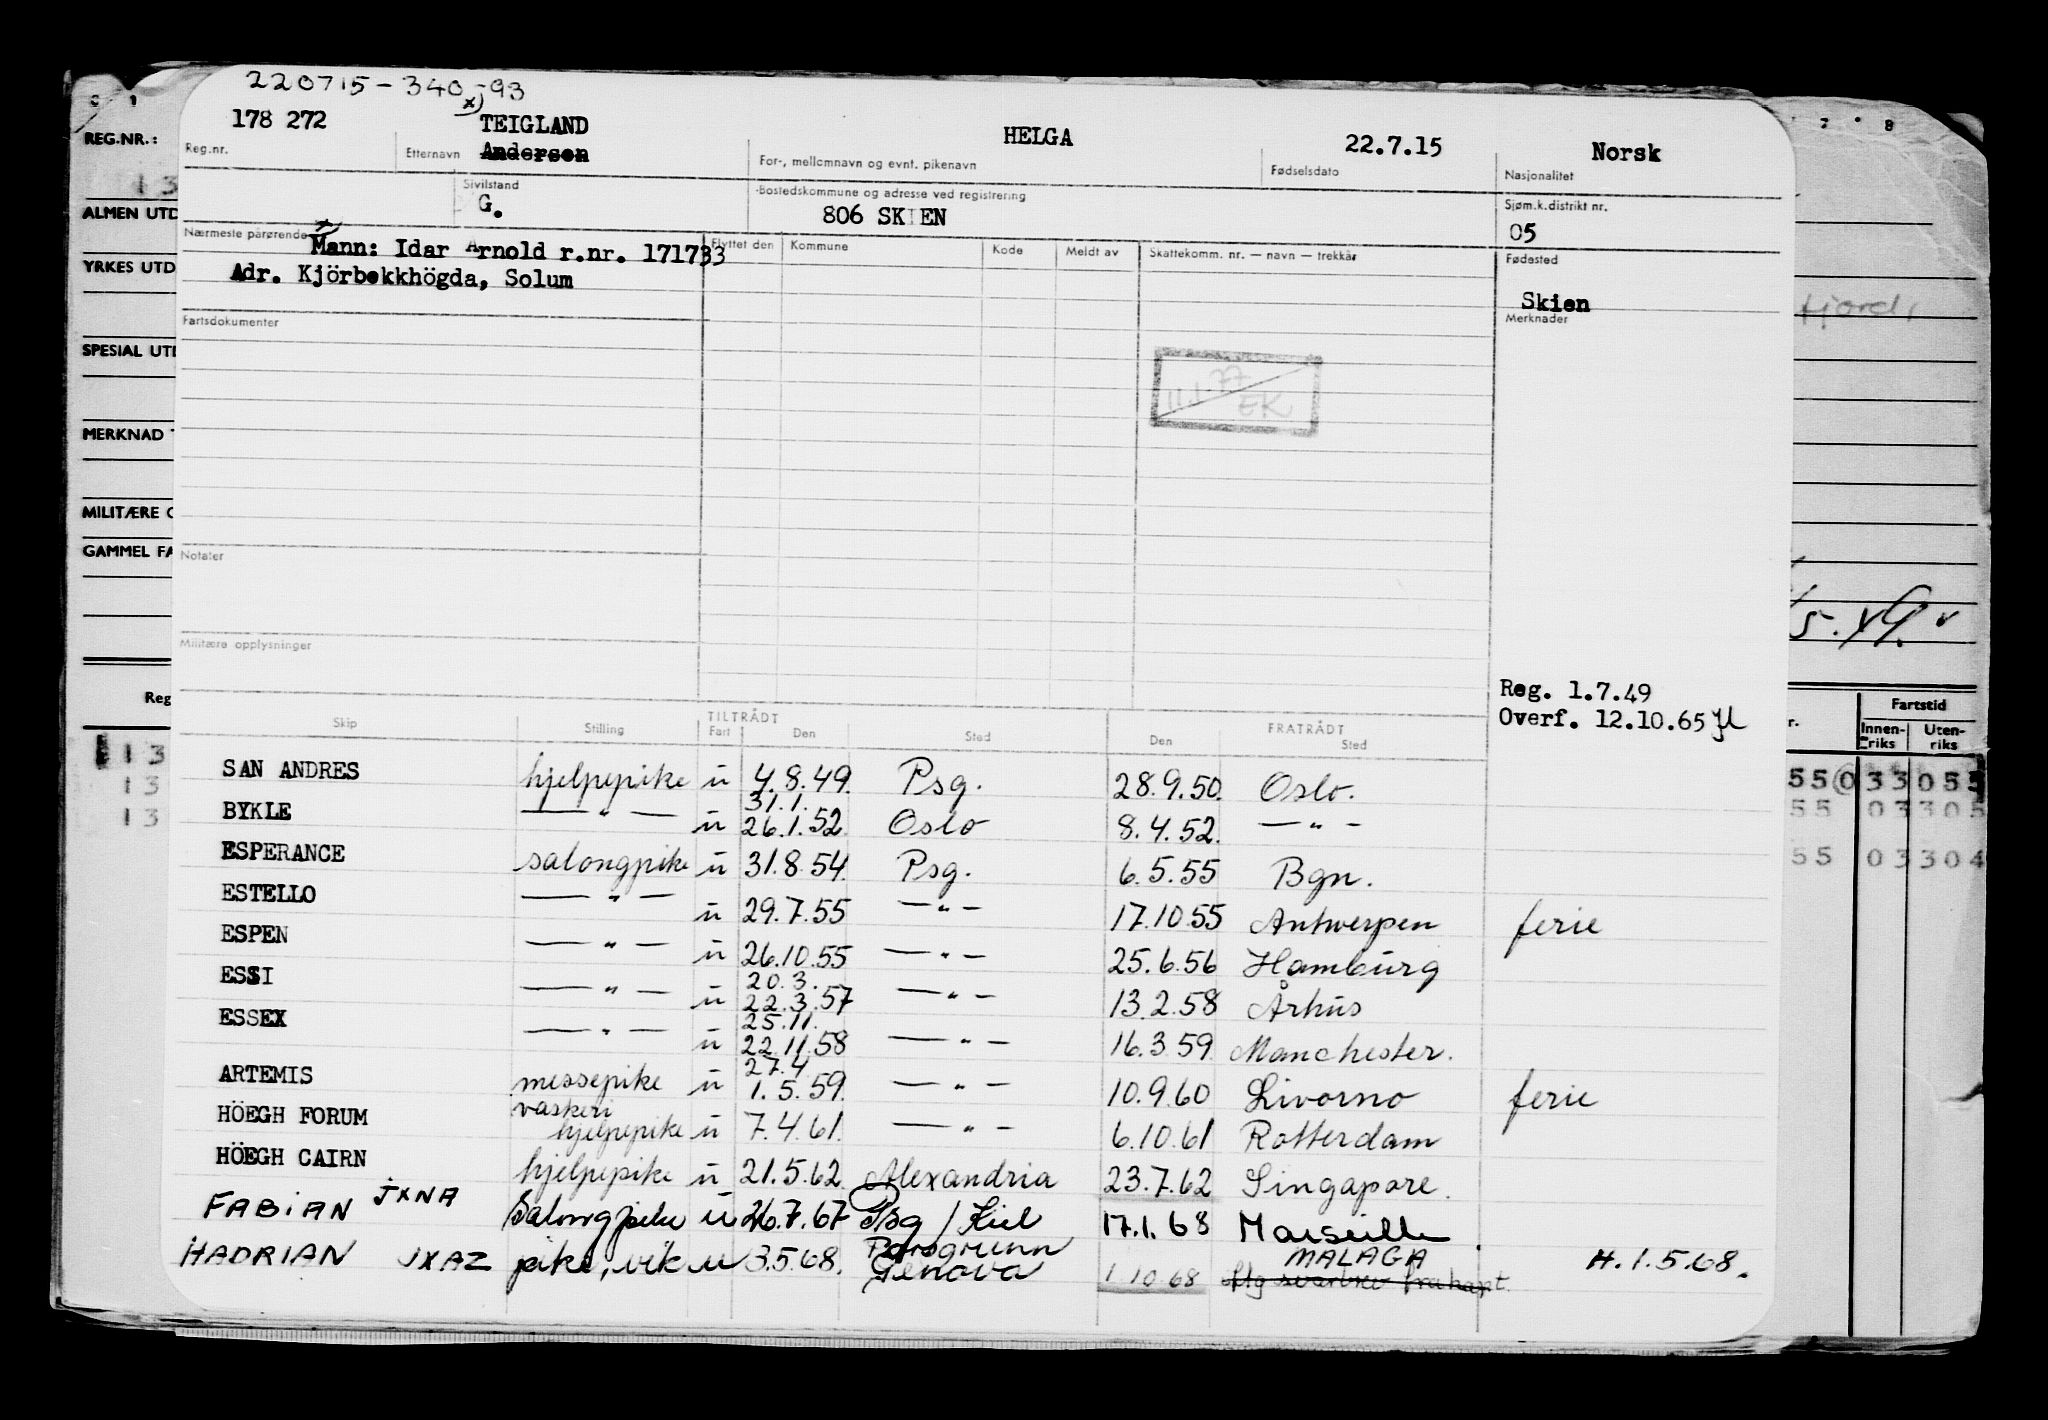 220715-340-93
178 272 x) TEIGLAND HELGA 22.7.15 Norsk
Reg.nr. Etternavn Andersen For-, mellomnavn og evnt. pikenavn Fødselsdato Nasjonalitet
Sivilstand Bostedskommune og adresse ved registrering Sjøm.k.distrikt nr.
G. 806 SKIEN 05
Nærmeste pårørende Flyttet den Kommune Kode Meldt av Skattekomm. nr. — navn — trekkår Fødested
x) Mann: Idar Arnold r.nr. 171733
Adr. Kjörbekkhögda, Solum
Skien
Fartsdokumenter Merknader
11.1.77
EK
Notater
Militære opplysninger
Reg. 1.7.49
Overf. 12.10.65
Skip Stilling TILTRÅDT Fart Den Sted FRATRÅDT Den Sted
SAN ANDRES hjelpepike u 4.8.49. Psg. 28.9.50. Oslo.
BYKLE — " — u 31.1. 26.1.52. Oslo 8.4.52. — " —
ESPERANCE salongpike u 31.8.54. Psg. 6.5.55 Bgn.
ESTELLO — " — u 29.7.55 — " — 17.10.55 Antwerpen ferie
ESPEN — " — u 26.10.55 — " — 25.6.56 Hamburg
ESSI — " — u 20.3. 22.3.57 — " — 13.2.58 Århus
ESSEX — " — u 25.11. 22.11.58 — " — 16.3.59. Manchester.
ARTEMIS messepike u 27.4 1.5.59. — " — 10.9.60 Livorno ferie
HÖEGH FORUM vaskeri hjelpepike u 7.4.61. — " — 6.10.61 Rotterdam
HÖEGH CAIRN hjelpepike u 21.5.62. Alexandria 23.7.62 Singapore.
FABIAN JXNA Salongpike u 26.7.67 Psg / Kiel 17.1.68 Marseille.
HADRIAN JXAZ pike, vik u 3.5.68. Porsgrunn Genova 1.10.68 MALAGA H.1.5.68.
REG.NR.:
13
ALMEN UTD
YRKES UTD
SPESIAL UTD
MERKNAD
MILITÆRE O
GAMMEL FA
Reg
13
13
13
7 8
fjord,
Fartstid
r. Innenriks Utenriks
55 0 33 055
55 03 305
55 03 304